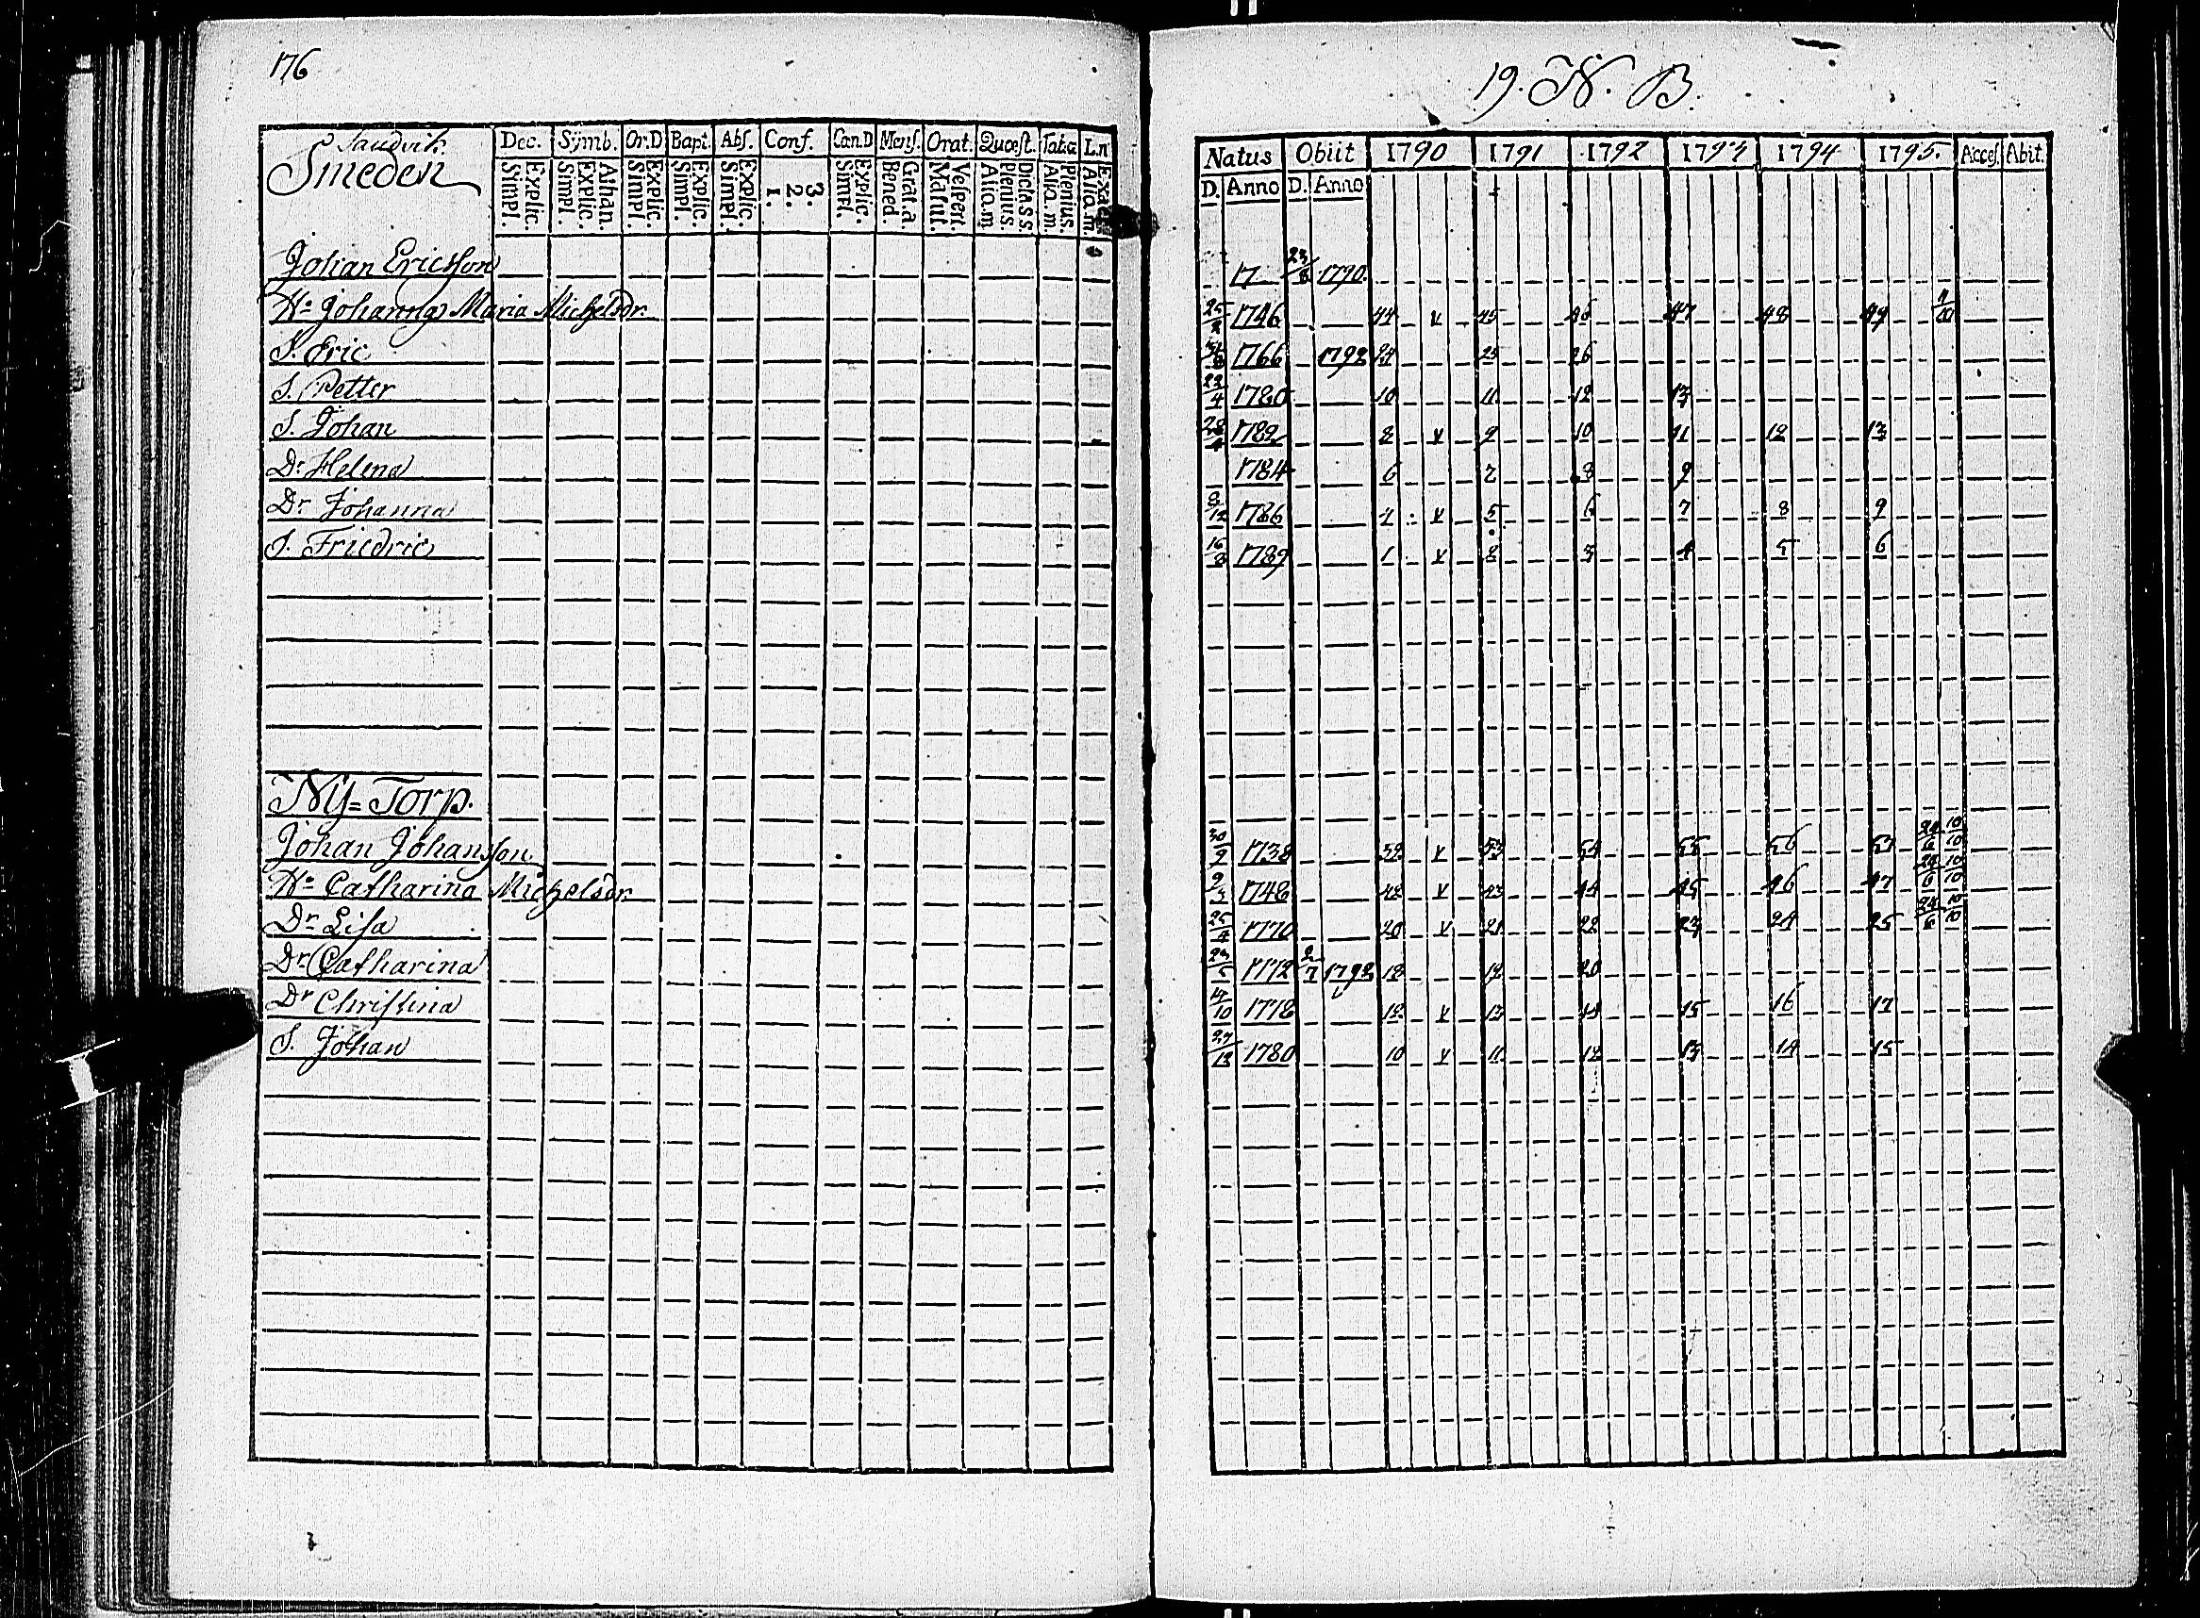 176
19. N. B.
Sandvik Dec. Sÿmb. Or.D Bapt. Abs. Conf. Can.D Mens. Orat. Quæst. Tab.œ
Smeden Explic. Simpl. Athan. Explic. Simpl. Explic. Simpl. Explic. Simpl. Explic. Simpl. 3. 2. 1. Explic. Simpl. Grat.a Bened. Vespert. Matut. Dict.s.s. Plenius. Aliq.m Plenius. Aliq.m Aliq.m
Natus Obiit 1790 1791 1792 1793 1794 1795. Acces. Abit.
D. Anno D. Anno
Johan Ericsson 17 23/8 1790.
H:u Johanna Maria Michelsdr. 1746 44 v 45 46 47 48 49
S. Eric 1766 1792 24 25 26
S. Petter 22/4 1780 10 11 12 13
S. Johan 1782 8 v 9 10 11 12 13
Dr Helena 1784 6 7 8 9
Dr Johanna 8/12 1786 4 v 5 6 7 8 9
S. Friedric 16/8 1789 1 v 2 3 4 5 6
Nÿ=Torp.
Johan Johansson 30/9 1738 52 v 53 54 55 56 57 24/6 10/10
H:u Catharina Michelsdr. 9/3 1748 42 v 43 44 45 46 47 24/6 10/10
Dr Lisa 25/4 1770 20 v 21 22 23 24 25 24/6 10/10
Dr Catharina 23/5 1772 2/7 1792 18 19 20
Dr Christina 1778 12 v 13 14 15 16 17
S. Johan 27/12 1780 10 v 11 12 13 14 15